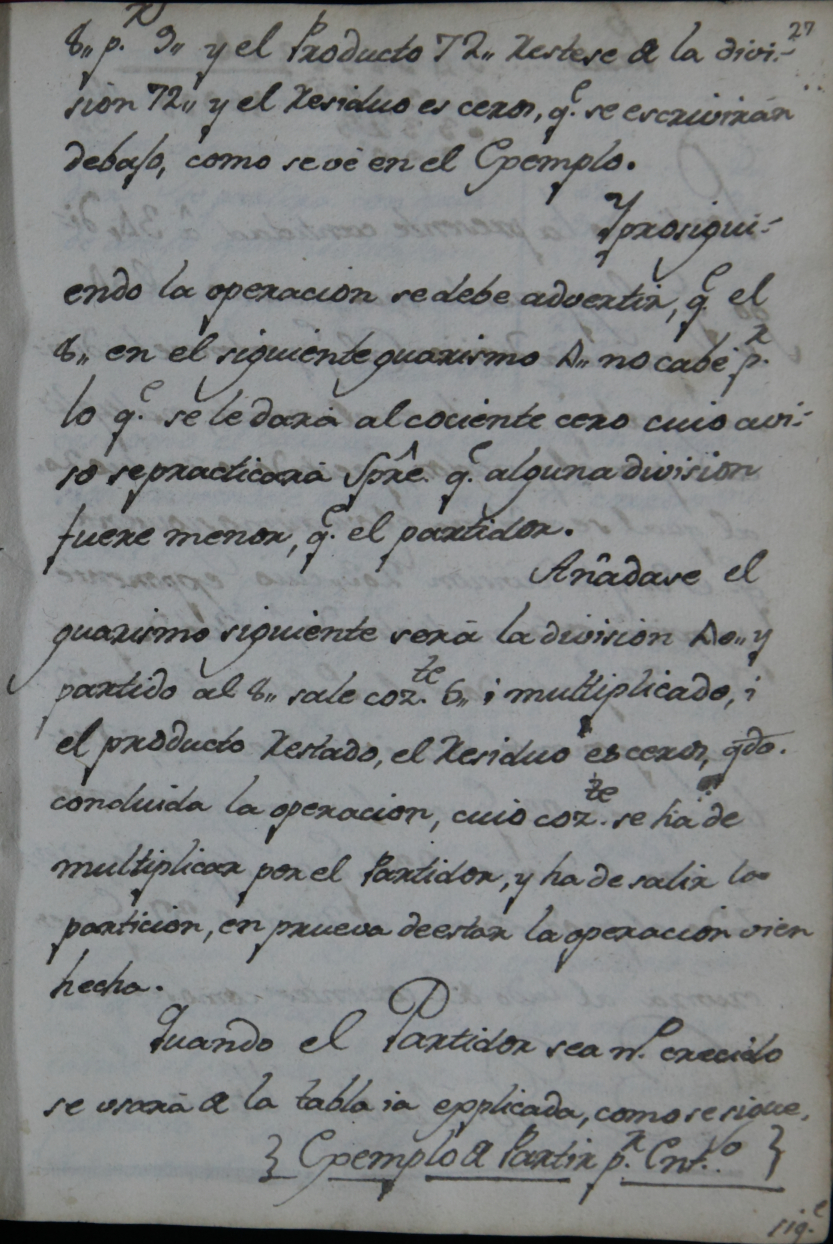 27
8,, p.r 9,, y el Producto 72,, Restese de la divi-
sion 72,, y el Residuo es ceros, q.e se escrivirán
debajo, como se vé en el Exemplo.
Y prosigui-
endo la operacion se debe advertir, q.e el
8,, en el siguiente guarismo 4,, no cabe p.r
lo q.e se le dará al cociente cero cuio avi-
so se practicará Spre. q.e alguna division
fuere menor, q.e el partidor.
Añadase el
guarismo siguiente será la division 40,, y
partido al 8,, sale coz.te 5,, i multiplicado, i
el producto Restado, el Residuo es ceros, qdo.
concluida la operacion, cuio coz.te se ha de
multiplicar por el Partidor, y ha de salir la
particion, en prueva de estar la operacion vien
hecha.
Quando el Partidor sea n.o crecido
se usará de la tabla ia explicada, como se sigue.
} Exemplo de Partir p.r Ent.o }
sig.e